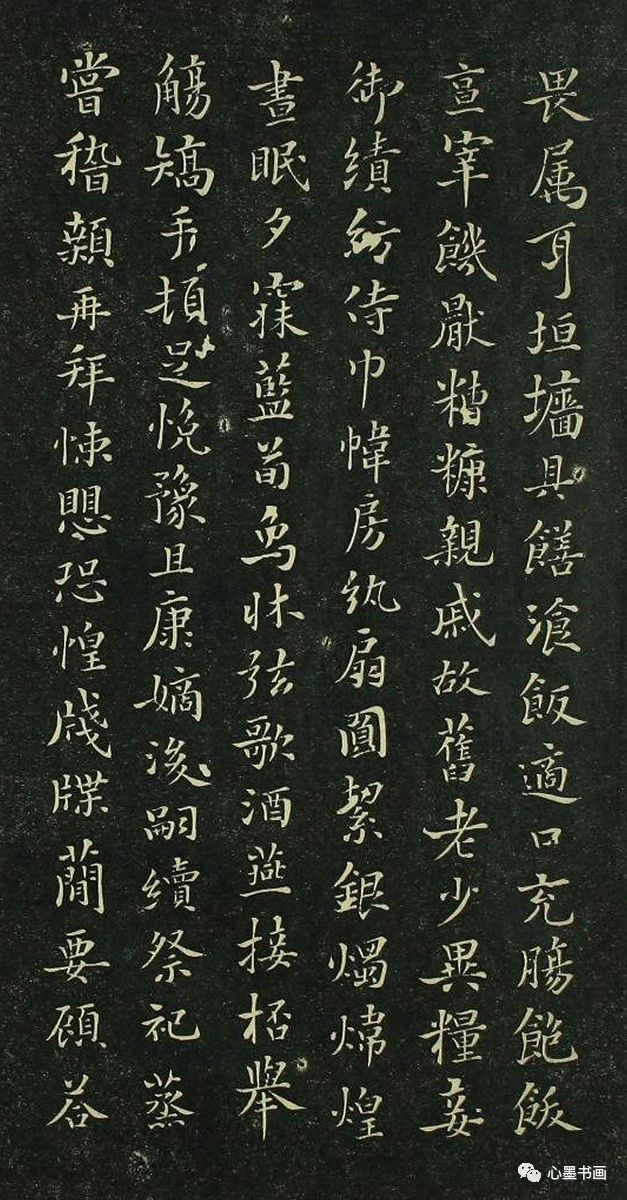 畏属耳垣墻具饍飡飯適口充膓飽飫
亯宰饑厭糟糠親戚故舊老少異糧妾
御績紡侍巾幃房紈扇圓絜銀燭煒煌
晝眠夕寐藍荀象牀弦歌酒燕接桮舉
觴矯手頓足悅豫且康嫡後嗣續祭祀蒸
嘗稽顙再拜悚愳恐惶牋牒蕳要顧荅
心墨书画